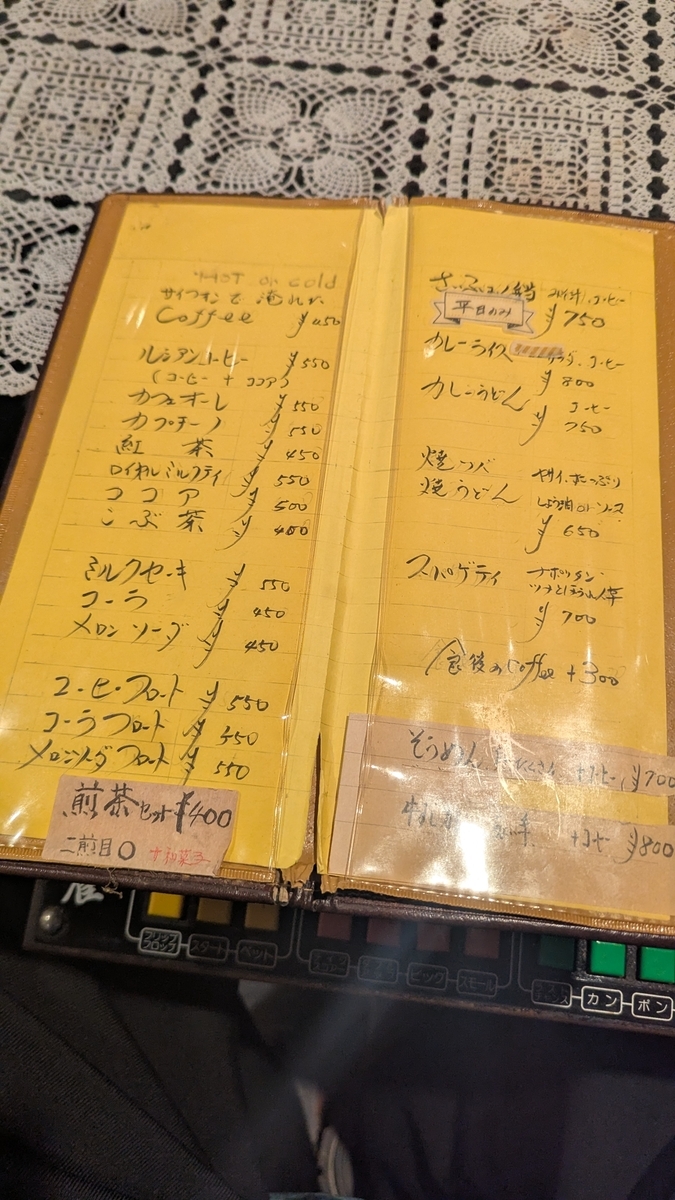 HOT or cold
サイフォンで淹れた
Coffee ¥450
ルシアンコーヒー ¥550
(コーヒー + ココア)
カフェオーレ ¥550
カプチーノ ¥550
紅茶 ¥450
ロイヤルミルクティ ¥550
ココア ¥500
こぶ茶 ¥400
ミルクセーキ ¥550
コーラ ¥450
メロンソーダ ¥450
コーヒーフロート ¥550
コーラフロート ¥550
メロンソーダフロート ¥550
煎茶セット ¥400
二煎目〇 +和菓子
弁当 コーヒー
平日のみ ¥750
カレーライス サラダ、コーヒー
¥800
カレーうどん コーヒー
¥750
焼ソバ ヤサイたっぷり
焼うどん しょう油 or ソース
¥650
スパゲティ ナポリタン
ツナとほうれん草
¥700
食後のCoffee +300
そうめん +コーヒー ¥700
+コーヒー ¥800
プリップフロップ
スタート
ベット
ビッグ
スモール
カン
ポン